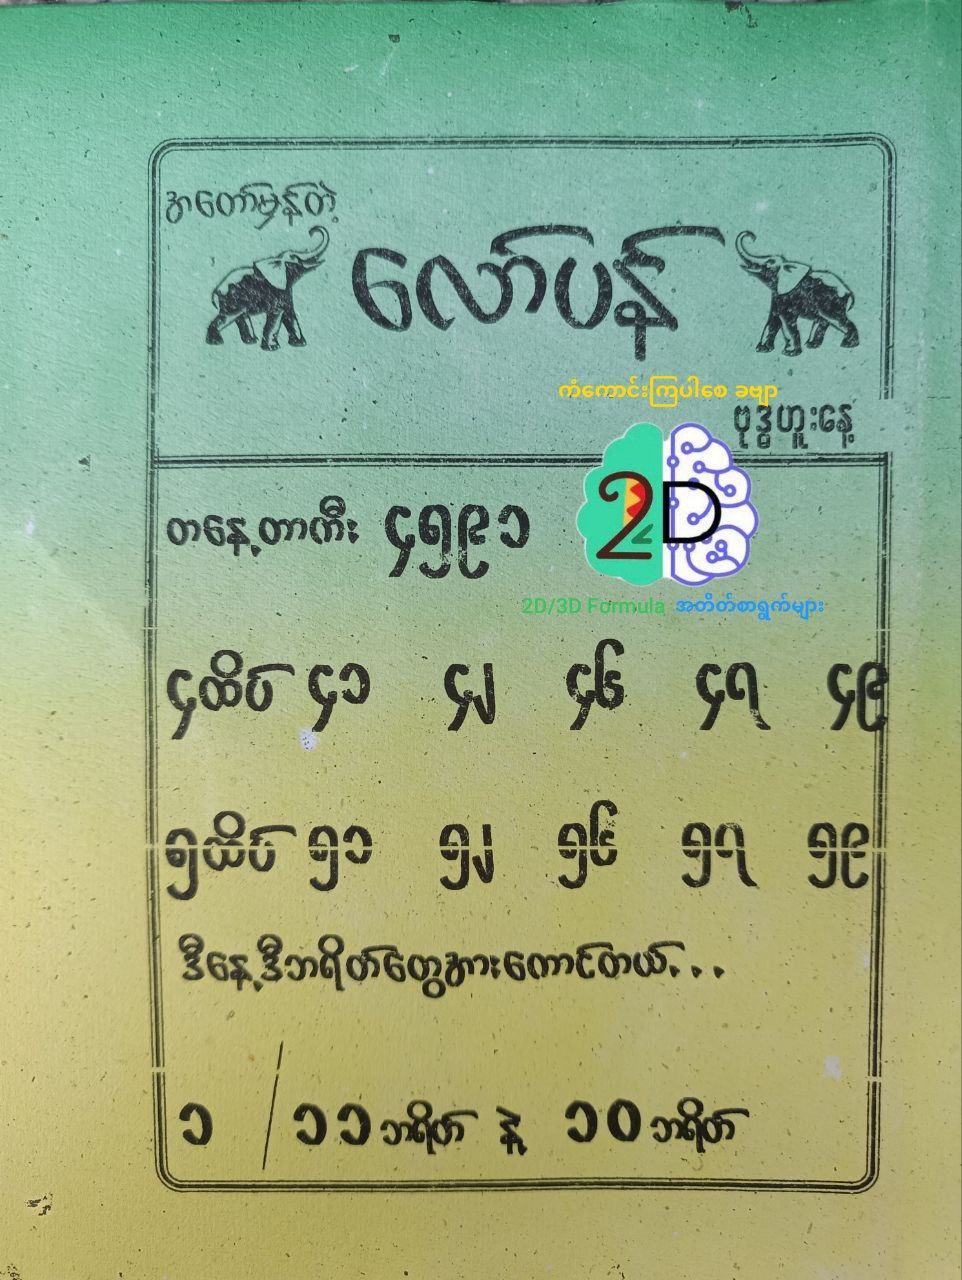 အတော်မှန်တဲ့
လော်ပန်
ကံကောင်းကြပါစေ ခဗျာ
ဗုဒ္ဓဟူးနေ့
တနေ့တာကီး ၄၅၉၁
2D
2D/3D Formula အတိတ်စာရွက်များ
၄ထိပ် ၄၁ ၄၂ ၄၆ ၄၇ ၄၉
၅ထိပ် ၅၁ ၅၂ ၅၆ ၅၇ ၅၉
ဒီနေ့ဒီဘရိတ်တွေအားကောင်တယ်...
၁ / ၁၁ဘရိတ် နဲ့ ၁၀ဘရိတ်